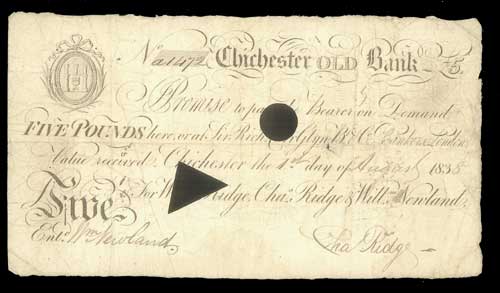 No. a1472 Chichester OLD Bank £5
Promise to pay Bearer on Demand
FIVE POUNDS here, or at Sir Rich Glyn Bt. & Co. Bankers London
Value received Chichester the 1st day of August 1835
Five For Ridge, Chas. Ridge & Willm. Newland.
Entd. Wm Newland. Chas Ridge